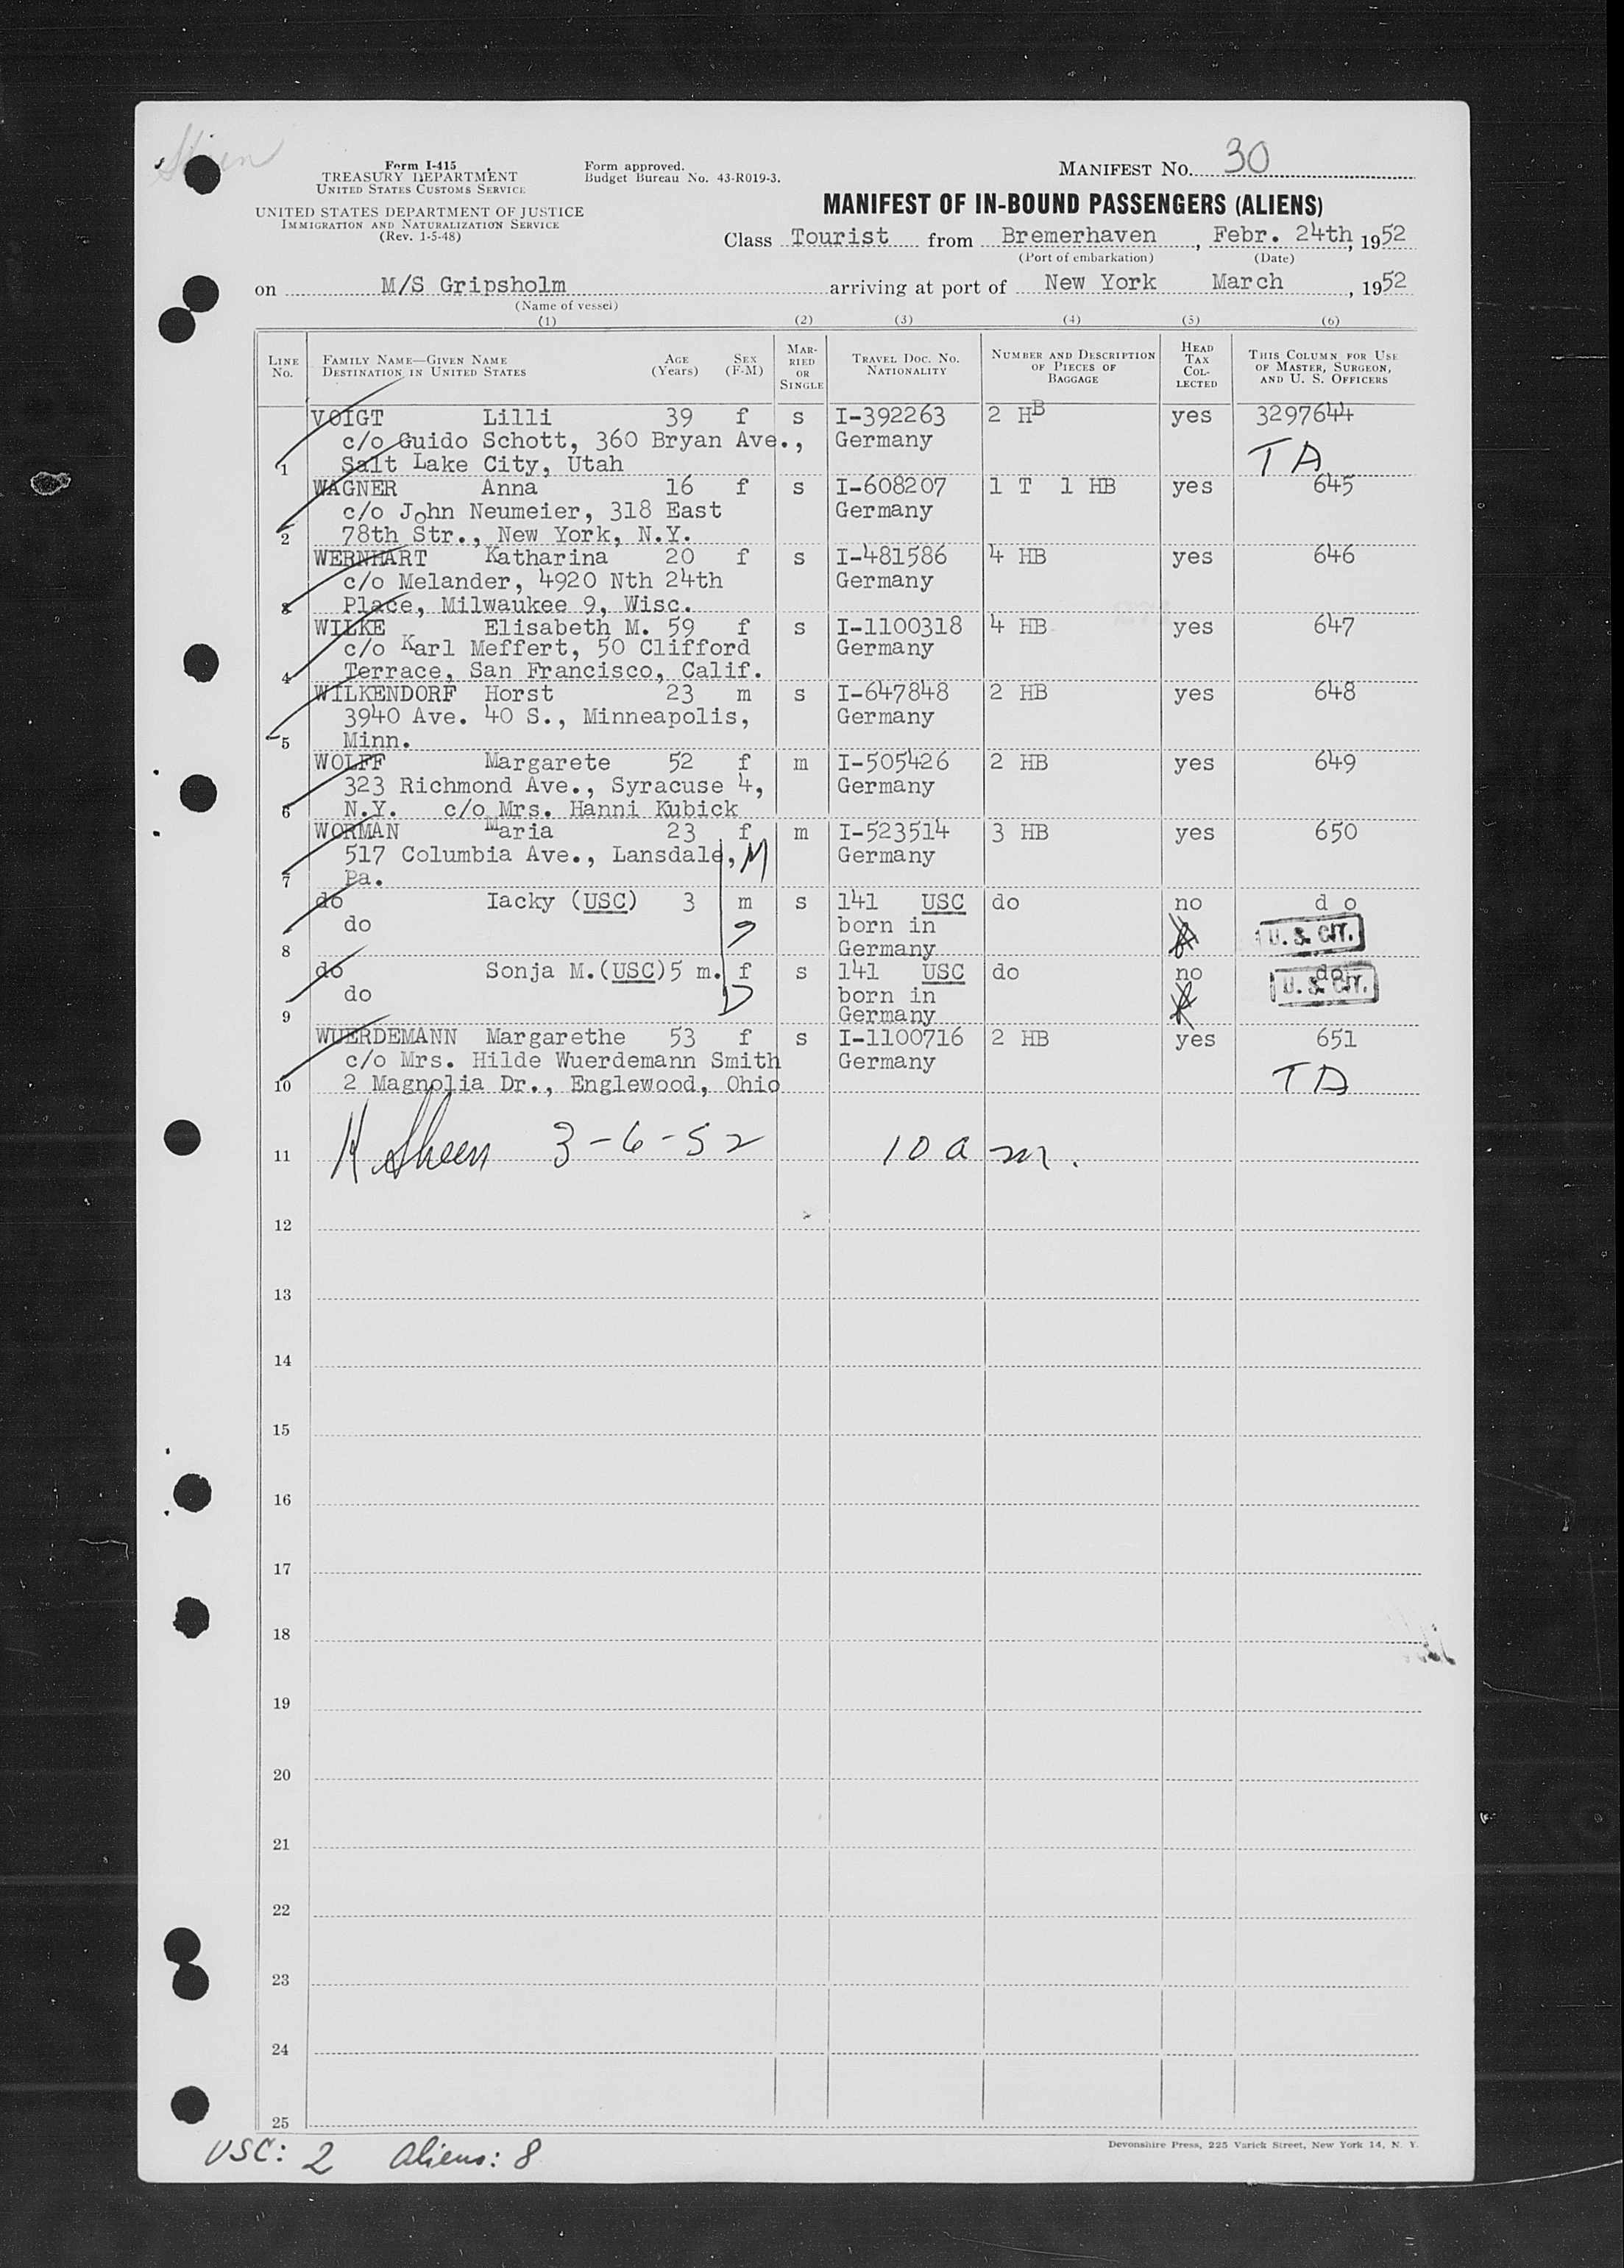 Form I-415
TREASURY DEPARTMENT
UNITED STATES CUSTOMS SERVICE
UNITED STATES DEPARTMENT OF JUSTICE
IMMIGRATION AND NATURALIZATION SERVICE
(Rev. 1-5-48)
Form approved.
Budget Bureau No. 43-R019-3.
MANIFEST No. 30
MANIFEST OF IN-BOUND PASSENGERS (ALIENS)
Class Tourist from Bremerhaven, Febr. 24th, 1952
(Port of embarkation) (Date)
on M/S Gripsholm arriving at port of New York March, 1952
(Name of vessel)
(1) (2) (3) (4) (5) (6)
LINE No. FAMILY NAME—GIVEN NAME DESTINATION IN UNITED STATES AGE (Years) SEX (F-M) MARRIED OR SINGLE TRAVEL DOC. NO. NATIONALITY NUMBER AND DESCRIPTION OF PIECES OF BAGGAGE HEAD TAX COLLECTED THIS COLUMN FOR USE OF MASTER, SURGEON, AND U. S. OFFICERS
VOIGT Lilli 39 f s I-392263 2 HB yes 3297644
c/o Guido Schott, 360 Bryan Ave., Germany
1 Salt Lake City, Utah TA
WAGNER Anna 16 f s I-608207 1 T 1 HB yes 645
c/o John Neumeier, 318 East Germany
2 78th Str., New York, N.Y.
WERNHART Katharina 20 f s I-481586 4 HB yes 646
c/o Melander, 4920 Nth 24th Germany
3 Place, Milwaukee 9, Wisc.
WILKE Elisabeth M. 59 f s I-1100318 4 HB yes 647
c/o Karl Meffert, 50 Clifford Germany
4 Terrace, San Francisco, Calif.
WILKENDORF Horst 23 m s I-647848 2 HB yes 648
3940 Ave. 40 S., Minneapolis, Germany
5 Minn.
WOLFF Margarete 52 f m I-505426 2 HB yes 649
323 Richmond Ave., Syracuse 4, Germany
6 N.Y. c/o Mrs. Hanni Kubick
WORMAN Maria 23 f m I-523514 3 HB yes 650
517 Columbia Ave., Lansdale, M Germany
7 Pa.
do Iacky (USC) 3 m s 141 USC do no d o
do born in U. S. CIT.
8 Germany
do Sonja M.(USC) 5 m. f s 141 USC do no do
do born in U. S. CIT.
9 Germany
WUERDEMANN Margarethe 53 f s I-1100716 2 HB yes 651
c/o Mrs. Hilde Wuerdemann Smith Germany
10 2 Magnolia Dr., Englewood, Ohio TA
11 H Sheen 3-6-52 10 a m.
12
13
14
15
16
17
18
19
20
21
22
23
24
25
Devonshire Press, 225 Varick Street, New York 14, N. Y.
USC: 2 Aliens: 8